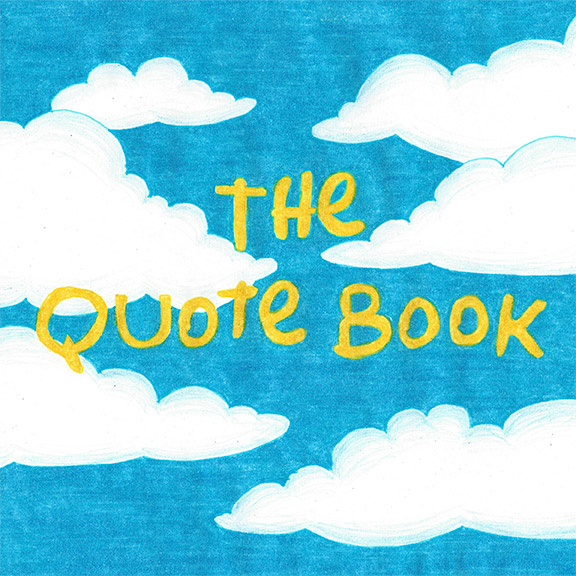 THe
QUOTe BOOK